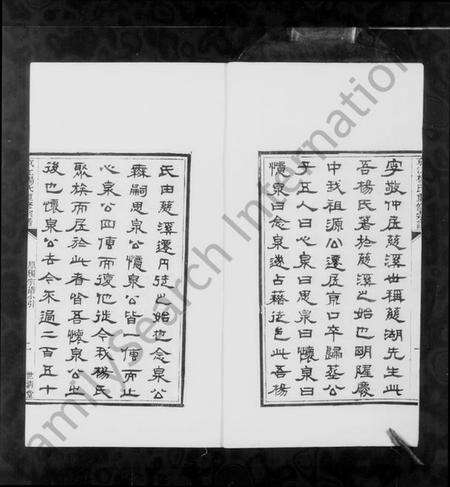 寧敬仲居慈溪世稱慈湖先生此
吾楊氏著於慈溪之始也明隆慶
中我祖源公遷居京口卒歸葬公
子五人曰心泉曰思泉曰懷泉曰
憶泉曰念泉遂占藉徒邑此吾楊
氏由慈溪遷丹徒之始也念泉公
無嗣思泉公憶泉公皆一傳而止
心泉公四傳而復他徙今我楊氏
聚族而居於此者皆吾懷泉公之
後也懷泉公去今不過二百五十
世清堂
FamilySearch International